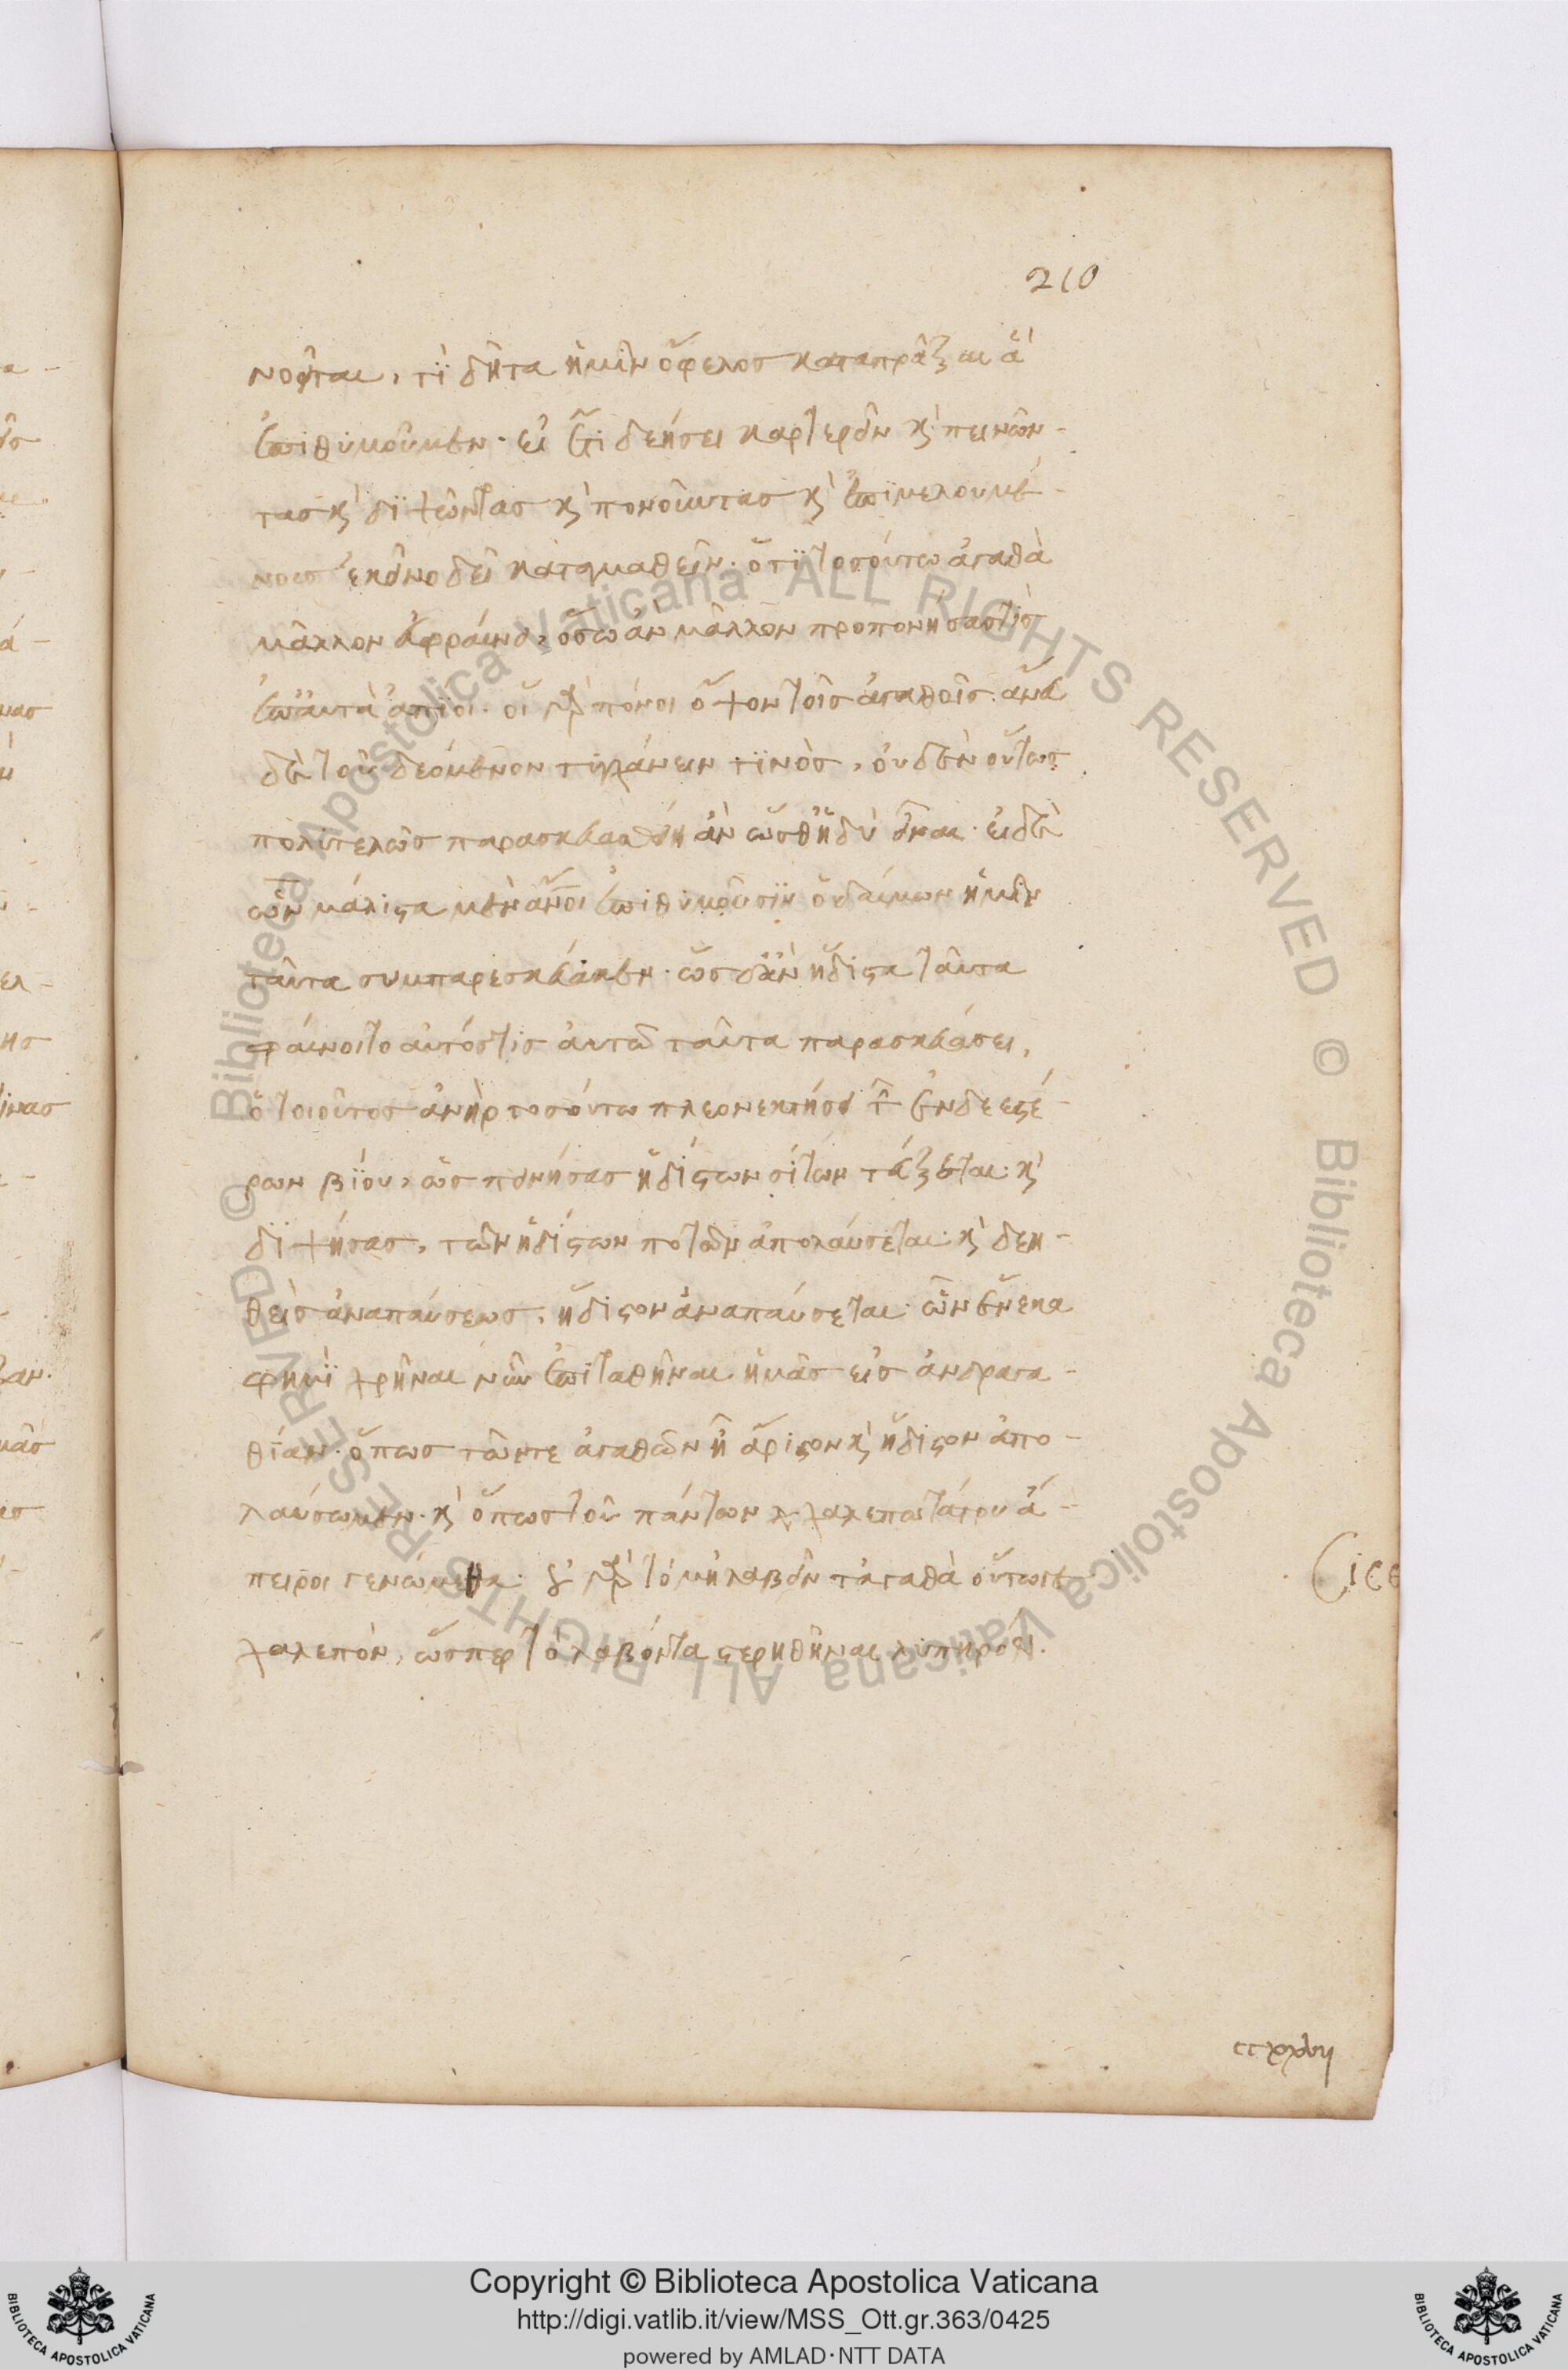 210
νοῦνται, τί δῆτα ἡμῖν ὄφελος καταπρᾶξαι ἃ
ἐπιθυμοῦμεν· εἰ ἔτι δεήσει καρτερεῖν κ̀ πεινῶν-
τας κ̀ διψῶντας κ̀ πονοῦντας κ̀ ἐπιμελουμέ-
νους ἐκεῖνο δεῖ καταμαθεῖν· ὅτι τοσούτω ἀγαθὰ
μᾶλλον εὐφραίνει, ὅσω ἂν μᾶλλον προπονήσας τὶς
ἐπ' αὐτὰ ἀπίοι· οἱ γὰρ πόνοι ὄψον τοῖς ἀγαθοῖς· ἄνευ
δὲ τοῦ δεόμενον τυγχάνειν τινὸς, οὐδὲν οὕτως
πολυτελῶς παρασκευασθείη ἂν ὥσθ' ἡδὺ εἶναι· εἰ δὲ
ὧν μάλιστα μὲν ἄνοι ἐπιθυμοῦσιν ὁ δαίμων ἡμῖν
ταῦτα συμπαρεσκεύακεν· ὡς δ' ἂν ἥδιστα ταῦτα
φαίνοιτο αὐτός τις αὑτῶ ταῦτα παρασκευάσει,
ὁ τοιοῦτος ἀνὴρ τοσούτω πλεονεκτήσει τ ἐνδεεστέ-
ρων βίου, ὡς πεινήσας ἡδίστων σίτων τεύξεται· κ̀
διψήσας, τῶν ἡδίστων ποτῶν ἀπολαύσεται· κ̀ δεη-
θεὶς ἀναπαύσεως, ἥδιστον ἀναπαύσεται· ὧν ἕνεκα
φημὶ χρῆναι νῦν ἐπιταθῆναι ἡμᾶς εἰς ἀνδραγα-
θίαν· ὅπως τῶν τε ἀγαθῶν ἧ ἄριστον κ̀ ἥδιστον ἀπο-
λαύσωμεν· κ̀ ὅπως τοῦ πάντων χαλεπωτάτου ἄ-
πειροι γενώμεθα· οὐ γὰρ τὸ μὴ λαβεῖν τἀγαθὰ οὕτω
χαλεπὸν, ὥσπερ τὸ λαβόντα στερηθῆναι λυπηρόν.
ccxxvii
© Biblioteca Apostolica Vaticana ALL RIGHTS RESERVED © Biblioteca Apostolica Vaticana ALL RIGHTS RESERVED
BIBLIOTECA APOSTOLICA VATICANA
Copyright © Biblioteca Apostolica Vaticana
http://digi.vatlib.it/view/MSS_Ott.gr.363/0425
powered by AMLAD·NTT DATA
BIBLIOTECA APOSTOLICA VATICANA